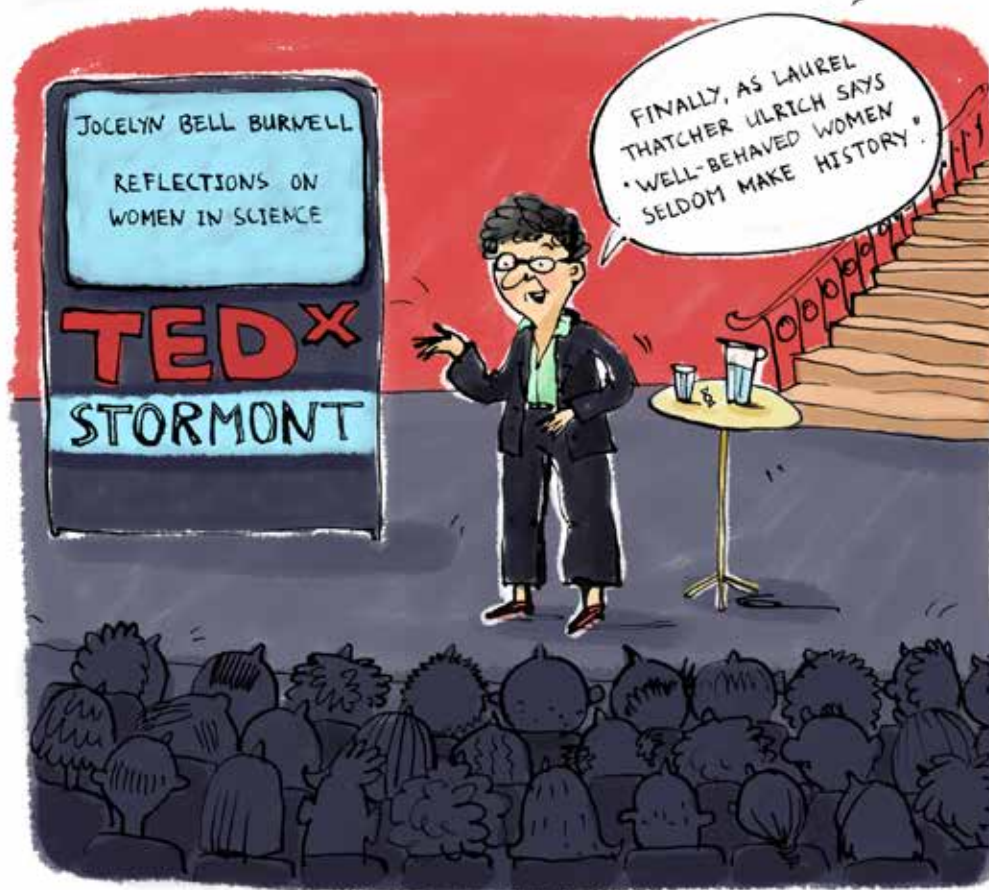 JOCELYN BELL BURNELL
REFLECTIONS ON
WOMEN IN SCIENCE
TEDX
STORMONT
FINALLY, AS LAUREL
THATCHER ULRICH SAYS
"WELL-BEHAVED WOMEN
SELDOM MAKE HISTORY".